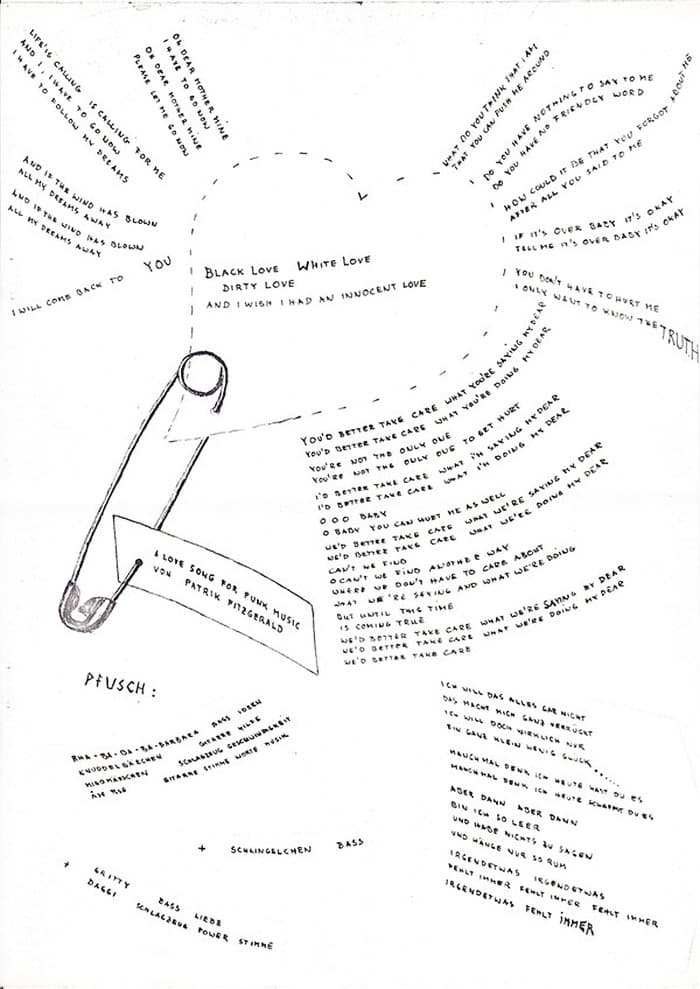 LIFE'S CALLING IS CALLING FOR ME
AND I, I HAVE TO GO NOW
I HAVE TO FOLLOW MY DREAMS
OH DEAR MOTHER MINE
I HAVE TO GO NOW
OH DEAR MOTHER MINE
PLEASE LET ME GO NOW
AND IF THE WIND HAS BLOWN
ALL MY DREAMS AWAY
AND IF THE WIND HAS BLOWN
ALL MY DREAMS AWAY
I WILL COME BACK TO YOU
WHAT DO YOU THINK THAT I AM
THAT YOU CAN PUSH ME AROUND
DO YOU HAVE NOTHING TO SAY TO ME
DO YOU HAVE NO FRIENDLY WORD
HOW COULD IT BE THAT YOU FORGOT ABOUT ME
AFTER ALL YOU SAID TO ME
IF IT'S OVER BABY IT'S OKAY
TELL ME IT'S OVER BABY IT'S OKAY
YOU DON'T HAVE TO HURT ME
I ONLY WANT TO KNOW THE TRUTH
BLACK LOVE WHITE LOVE
DIRTY LOVE
AND I WISH I HAD AN INNOCENT LOVE
YOU'D BETTER TAKE CARE WHAT YOU'RE SAYING MY DEAR
YOU'D BETTER TAKE CARE WHAT YOU'RE DOING MY DEAR
YOU'RE NOT THE ONLY ONE
YOU'RE NOT THE ONLY ONE TO GET HURT
I'D BETTER TAKE CARE WHAT I'M SAYING MY DEAR
I'D BETTER TAKE CARE WHAT I'M DOING MY DEAR
O O O BABY
O BABY YOU CAN HURT ME AS WELL
WE'D BETTER TAKE CARE WHAT WE'RE SAYING MY DEAR
WE'D BETTER TAKE CARE WHAT WE'RE DOING MY DEAR
CAN'T WE FIND
O CAN'T WE FIND ANOTHER WAY
WHERE WE DON'T HAVE TO CARE ABOUT
WHAT WE'RE SAYING AND WHAT WE'RE DOING
BUT UNTIL THIS TIME
IS COMING TRUE
WE'D BETTER TAKE CARE WHAT WE'RE SAYING MY DEAR
WE'D BETTER TAKE CARE WHAT WE'RE DOING MY DEAR
WE'D BETTER TAKE CARE
A LOVE SONG FOR PUNK MUSIC
VON PATRIK FITZGERALD
PFUSCH:
BA-BA-BARBARA BASS IDEEN
KNUDDELBÄRCHEN GITARRE HILDE
SCHLAGZEUG GESCHWINDIGKEIT
GITARRE STIMME WORTE MUSIK
+ SCHLINGELCHEN BASS
+ GRITTY BASS LIEBE
DAGGI SCHLAGZEUG POWER STIMME
ICH WILL DAS ALLES GAR NICHT
DAS MACHT MICH GANZ VERRÜCKT
ICH WILL DOCH WIRKLICH NUR
EIN GANZ KLEIN WENIG GLÜCK......
MANCHMAL DENK ICH HEUTE HAST DU ES
MANCHMAL DENK ICH HEUTE SCHAFFST DU ES
ABER DANN ABER DANN
BIN ICH SO LEER
UND HABE NICHTS ZU SAGEN
UND HÄNGE NUR SO RUM
IRGENDETWAS IRGENDETWAS
FEHLT IMMER FEHLT IMMER FEHLT IMMER
IRGENDETWAS FEHLT IMMER